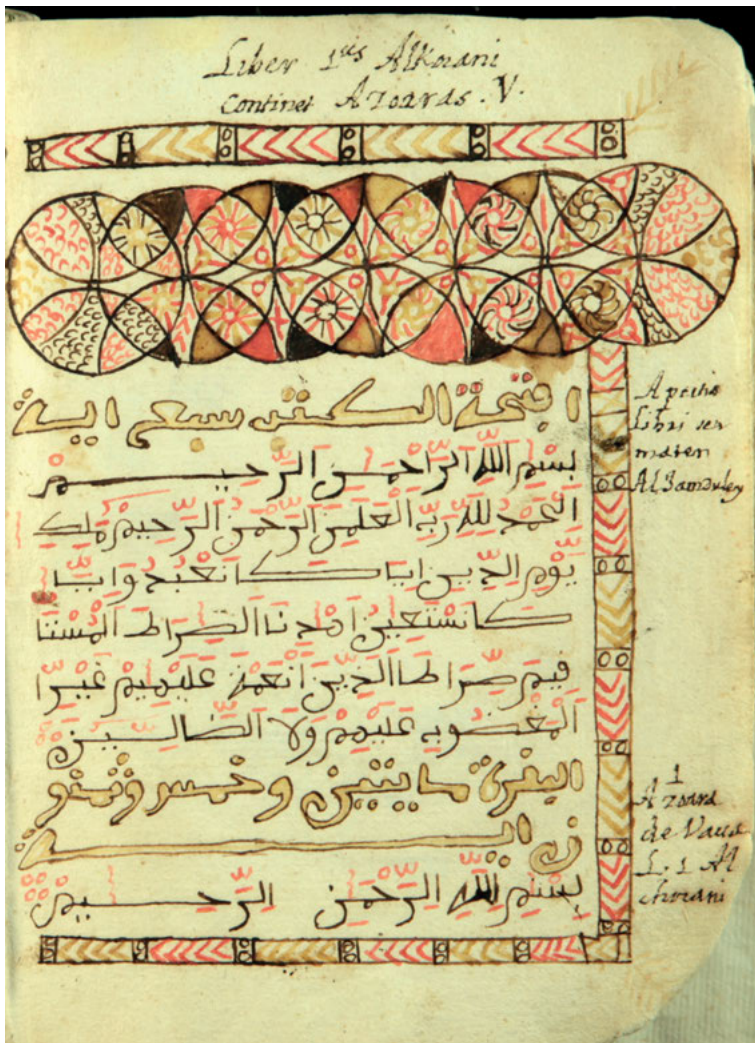 Liber 1us Alkorani
Continet Azoaras . V.
افتحة الكتب سبع اية
بسم الله الرحمن الرحيم
الحمد لله رب العلمين الرحمن الرحيم ملك
يوم الدين اياك نعبد وايا
ك نستعين اهدنا الصراط المستا
قيم صراط الذين انعمت عليهم غير ا
المغضوب عليهم ولا الضالين
البقرة مايتين وخمس وثمنو
ن اية
بسم الله الرحمن الرحيم
Libri seu
1
Azoara
de Vacca
L. 1 Al
chorani